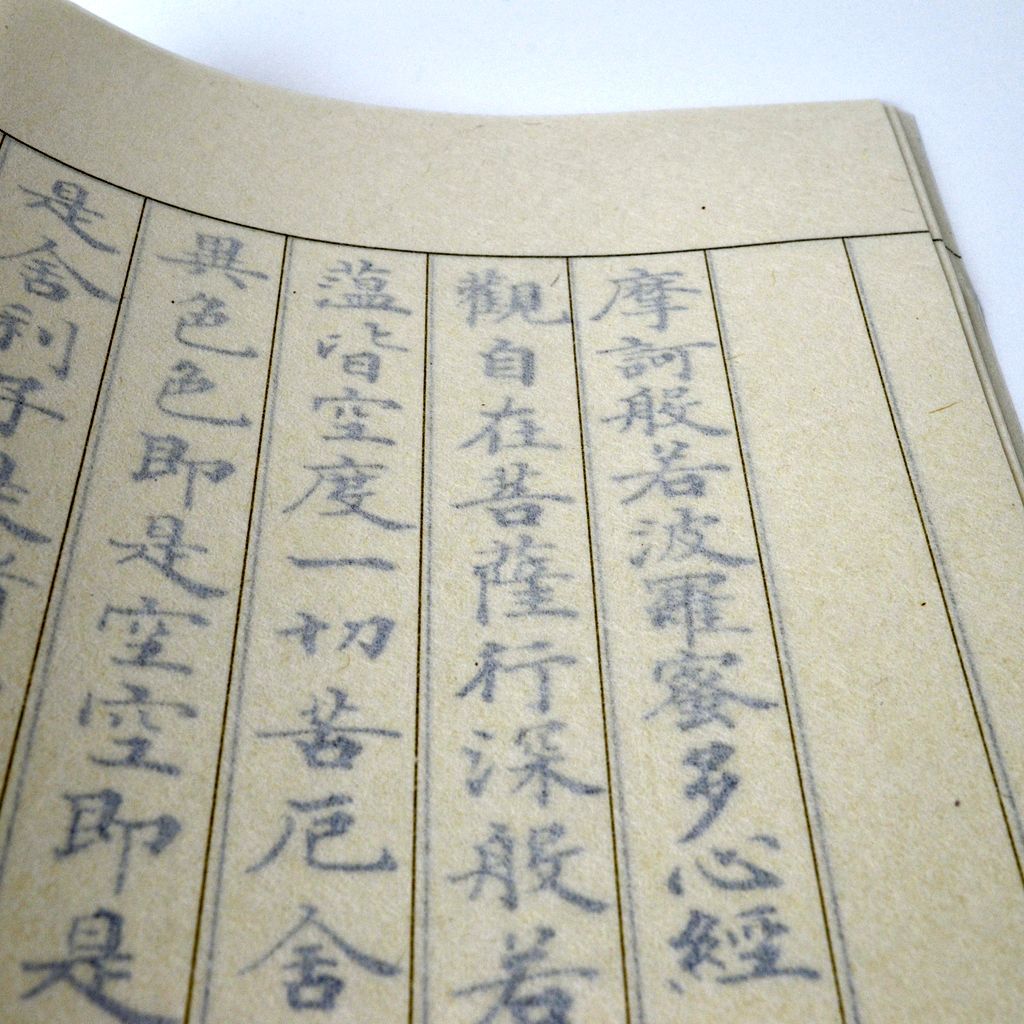 摩訶般若波羅蜜多心經
觀自在菩薩行深般若
蘊皆空度一切苦厄舍
異色色即是空空即是
是舍利子是諸